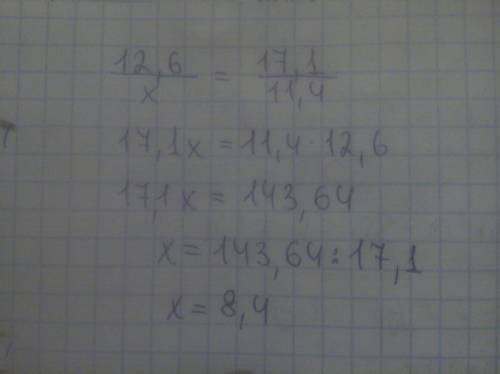 12,6/x = 17,1/11,4
17,1x = 11,4 · 12,6
17,1x = 143,64
x = 143,64 : 17,1
x = 8,4